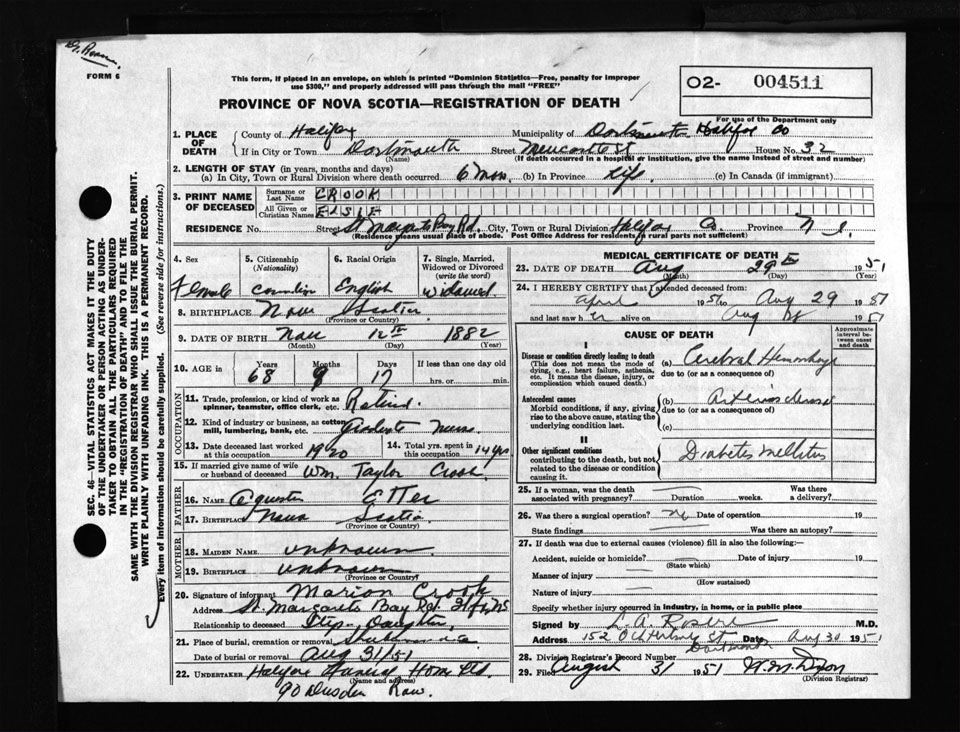 FORM 6
This form, if placed in an envelope, on which is printed "Dominion Statistics—Free, penalty for improper
use $300," and properly addressed will pass through the mail "FREE"
02- 004511
PROVINCE OF NOVA SCOTIA—REGISTRATION OF DEATH
For use of the Department only
1. PLACE OF DEATH
County of Halifax Municipality of Dartmouth Halifax Co
If in City or Town Dartmouth Street House No. 32
(Name) (If death occurred in a hospital or institution, give the name instead of street and number)
2. LENGTH OF STAY (in years, months and days)
(a) In City, Town or Rural Division where death occurred 6 mos. (b) In Province life (c) In Canada (if immigrant)
3. PRINT NAME OF DECEASED
Surname or Last Name CROOK
All Given or Christian Names ELSIE
RESIDENCE No. Street St Margarets Bay Rd. City, Town or Rural Division Halifax Co. Province N S.
(Residence means usual place of abode. Post Office Address for residents in rural parts not sufficient)
4. Sex Female
5. Citizenship (Nationality) Canadian
6. Racial Origin English
7. Single, Married, Widowed or Divorced (write the word) Widowed
8. BIRTHPLACE Nova Scotia
(Province or Country)
9. DATE OF BIRTH Nov 12th 1882
(Month) (Day) (Year)
10. AGE in Years Months Days If less than one day old
68 9 17 hrs. or min.
OCCUPATION
11. Trade, profession, or kind of work as
spinner, teamster, office clerk, etc. Retired.
12. Kind of industry or business, as cotton
mill, lumbering, bank, etc. Graduate Nurse
13. Date deceased last worked
at this occupation 1920
14. Total yrs. spent in
this occupation 14 yrs
15. If married give name of wife
or husband of deceased Wm. Taylor Crook
FATHER
16. NAME Etter
17. BIRTHPLACE Nova Scotia
(Province or Country)
MOTHER
18. MAIDEN NAME unknown.
19. BIRTHPLACE unknown
(Province or Country)
20. Signature of informant Marion Crook
Address St. Margarets Bay Rd.
Relationship to deceased Step-Daughter.
21. Place of burial, cremation or removal
Date of burial or removal Aug 31/51
22. UNDERTAKER Halifax Funeral Home Ltd
(Name and address)
90 Dresden Row.
MEDICAL CERTIFICATE OF DEATH
23. DATE OF DEATH Aug 29 1951
(Month) (Day) (Year)
24. I HEREBY CERTIFY that I attended deceased from:
April 1951 to Aug 29 1951
and last saw her alive on Aug 1951
CAUSE OF DEATH
Approximate interval between onset and death
I
Disease or condition directly leading to death
(This does not mean the mode of
dying, e.g., heart failure, asthenia,
etc. It means the disease, injury, or
complication which caused death.)
(a) Cerebral Hemorrhage
due to (or as a consequence of)
Antecedent causes
Morbid conditions, if any, giving
rise to the above cause, stating the
underlying condition last.
(b) Arteriosclerosis
due to (or as a consequence of)
(c)
II
Other significant conditions
contributing to the death, but not
related to the disease or condition
causing it.
Diabetes Mellitus
25. If a woman, was the death Was there
associated with pregnancy? — Duration weeks. a delivery?
26. Was there a surgical operation? No Date of operation 19
State findings Was there an autopsy?
27. If death was due to external causes (violence) fill in also the following:—
Accident, suicide or homicide? Date of injury 19
(State which)
Manner of injury —
(How sustained)
Nature of injury —
Specify whether injury occurred in industry, in home, or in public place
Signed by M.D.
Address 152 Ochterloney St Date Aug 30 1951
Dartmouth
28. Division Registrar's Record Number
29. Filed August 31 1951
(Division Registrar)
SEC. 46—VITAL STATISTICS ACT MAKES IT THE DUTY
OF THE UNDERTAKER OR PERSON ACTING AS UNDER-
TAKER TO OBTAIN ALL THE PARTICULARS REQUIRED
IN THE "REGISTRATION OF DEATH" AND TO FILE THE
SAME WITH THE DIVISION REGISTRAR WHO SHALL ISSUE THE BURIAL PERMIT.
WRITE PLAINLY WITH UNFADING INK. THIS IS A PERMANENT RECORD.
Every item of information should be carefully supplied. (See reverse side for instructions.)